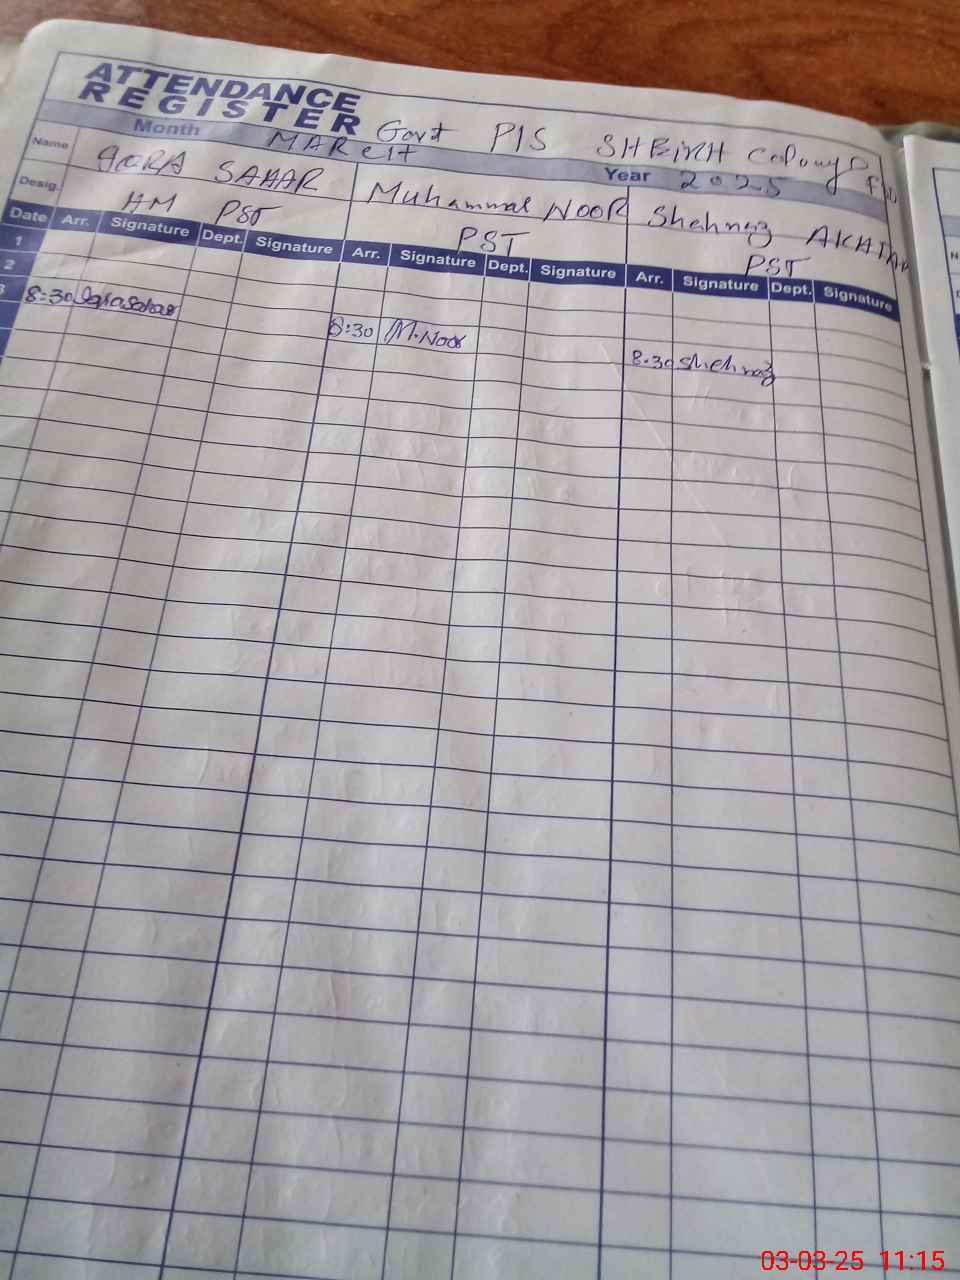 ATTENDANCE
REGISTER
Govt P/S SHEIKH Colony
Month MARCH Year 2025
Name IQRA SAHAR Muhammad NOOR Shehnaz AKHTAR
Desig. HM PST PST PST
Date Arr. Signature Dept. Signature Arr. Signature Dept. Signature Arr. Signature Dept. Signature
1
2
3 8:30 Iqra Sahar 8:30 M.Noor 8:30 Shehnaz
03-03-25 11:15